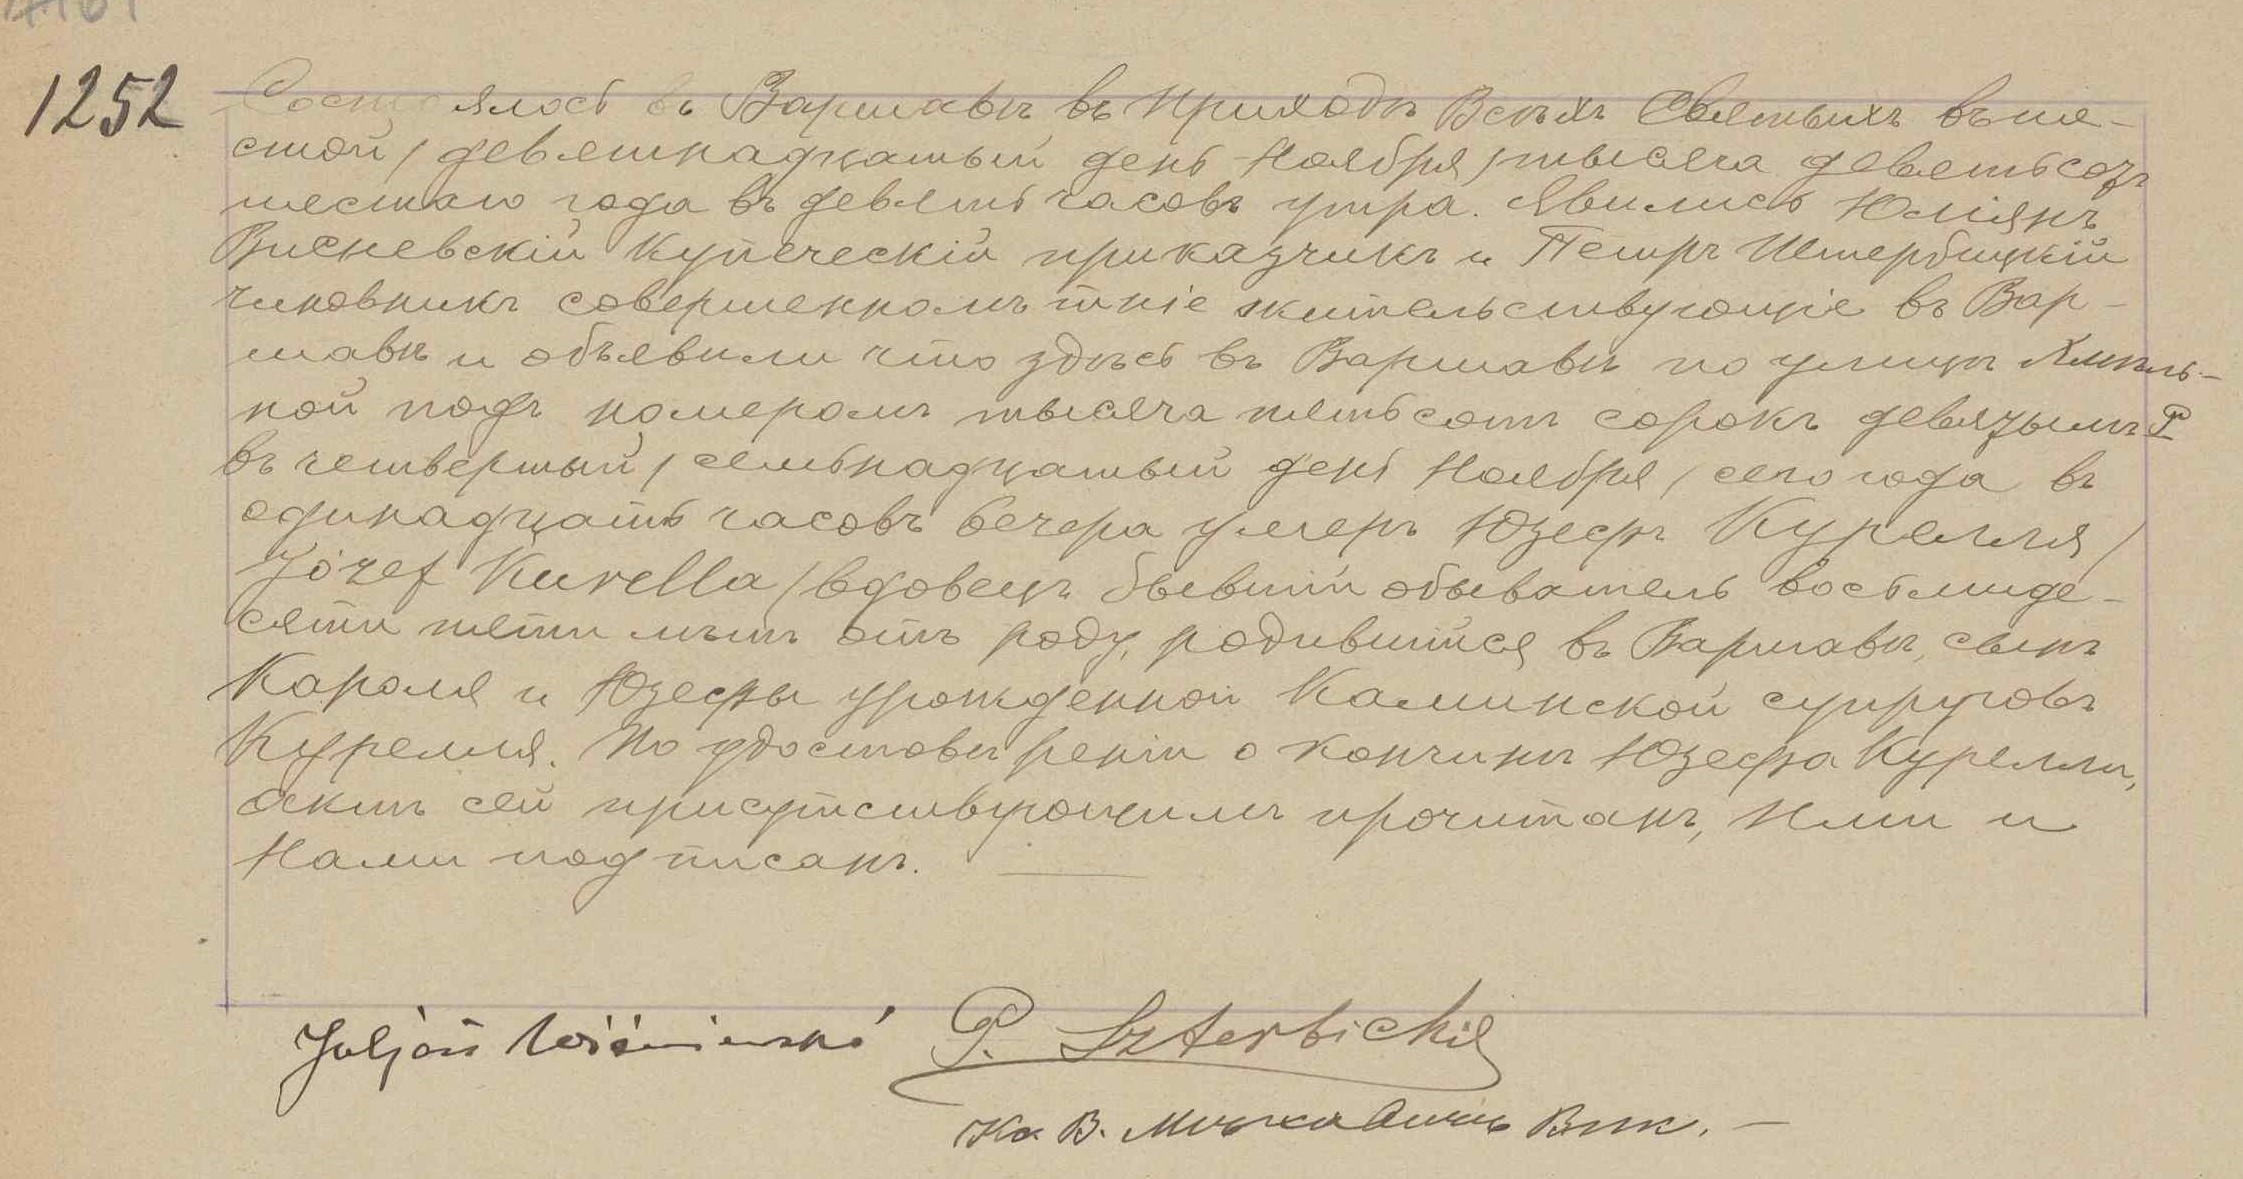 1252
Состоялось въ Варшавѣ въ приходѣ Всѣхъ Святыхъ въ ше-
стой / девятнадцатый день Ноября / тысяча девятьсотъ
шестаго года въ девять часовъ утра. Явились Юліянъ
Висневскій купеческій приказчикъ и Петръ Штербицкій
чиновникъ совершеннолѣтніе жительствующіе въ Вар-
шавѣ и объявили что здѣсь въ Варшавѣ по улицѣ Хмѣль-
ной подъ номеромъ тысяча пятьсотъ сорокъ девятымъ
въ четвертый / семьнадцатый день Ноября / сего года въ
одинадцать часовъ вечера умеръ Юзефъ Курелля /
Józef Kurella / вдовецъ бывшій обыватель восьмиде-
сяти пяти лѣтъ отъ роду, родившійся въ Варшавѣ, сынъ
Кароля и Юзефы урожденной Калинской супруговъ
Курелля. По удостовѣреніи о кончинѣ Юзефа Курелли,
актъ сей присутствующимъ прочитанъ, Ими и
Нами подписанъ.
Juljan Wiśniewski P. Szterbicki
Кс. В. Вик.